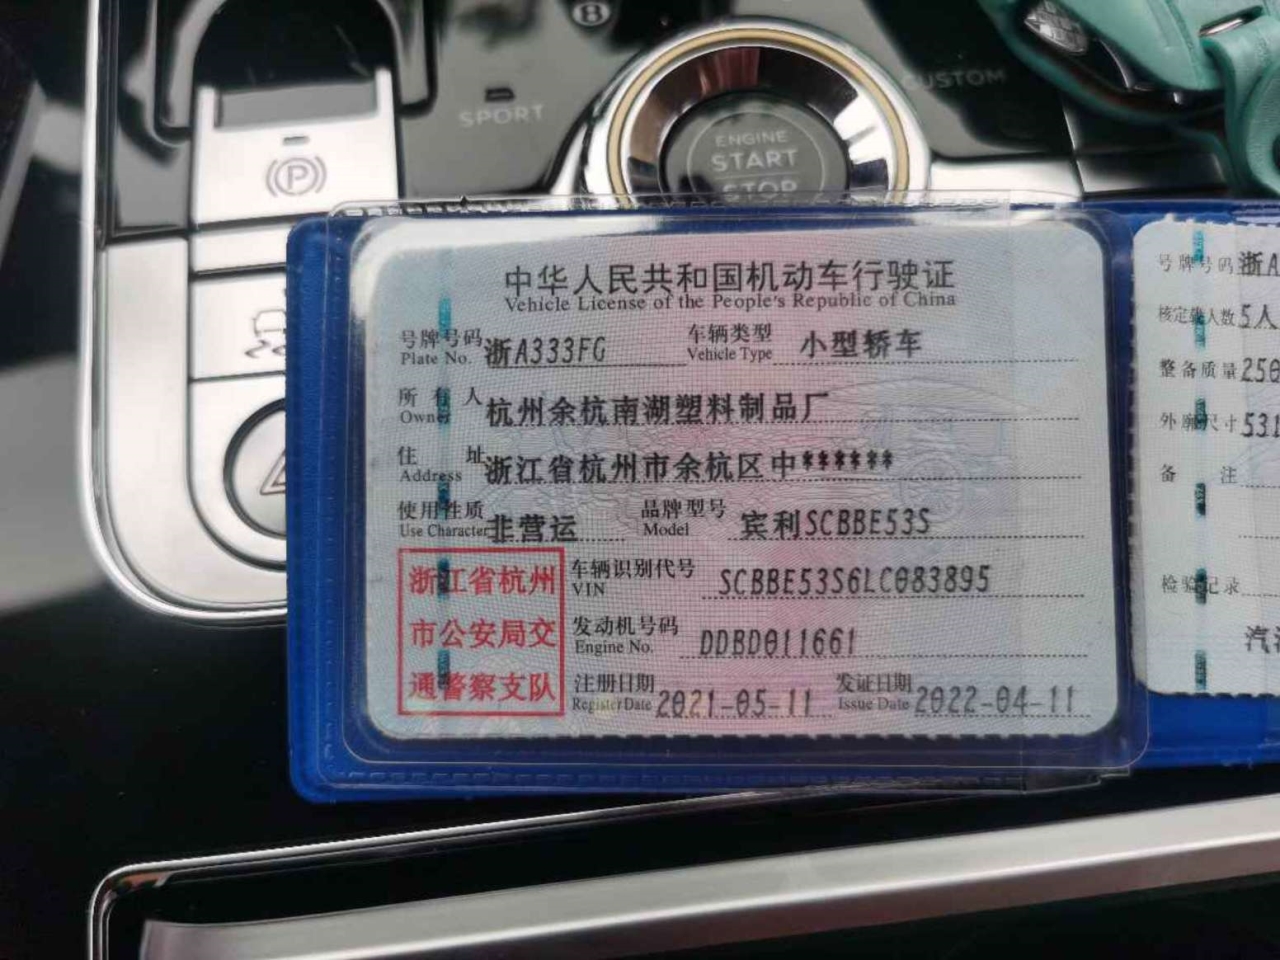 SPORT
CUSTOM
ENGINE
START
STOP
中华人民共和国机动车行驶证
Vehicle License of the People's Republic of China
号牌号码 浙A333FG 车辆类型 小型轿车
Plate No. Vehicle Type
所有人 杭州余杭南湖塑料制品厂
Owner
住址 浙江省杭州市余杭区中******
Address
使用性质 非营运 品牌型号 宾利SCBBE53S
Use Character Model
浙江省杭州
市公安局交
通警察支队
车辆识别代号 SCBBE53S6LC083895
VIN
发动机号码 DDBD011661
Engine No.
注册日期 2021-05-11 发证日期 2022-04-11
Register Date Issue Date
号牌号码 浙A
核定载人数 5人
整备质量 250
外廓尺寸 531
备注
检验记录